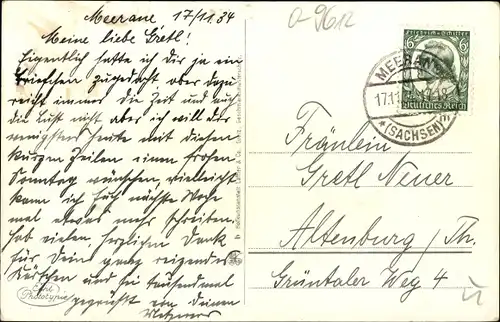 Meerane, 17/11.34
Meine liebe Gretl!
Eigentlich hatte ich Dir ja ein
Briefchen zugedacht aber dazu
reicht immer die Zeit und auch
die Lust nicht aber ich will dir
wenigstens heute mit diesen
kurzen Zeilen einen frohen
Sonntag wünschen, vielleicht
kann ich Euch nächste Woche
mal etwas mehr schreiben.
Hab vielen, herzlichen Dank
für Dein ganz reizendes
und sei tausendmal
gegrüßt von Deinen
a-9612
Friedrich v. Schiller
6
Deutsches Reich
MEERANE
17.11
*(SACHSEN)
Fräulein
Gretl Neuer
Altenburg / Th.
Grüntaler Weg 4
Echte Photographie